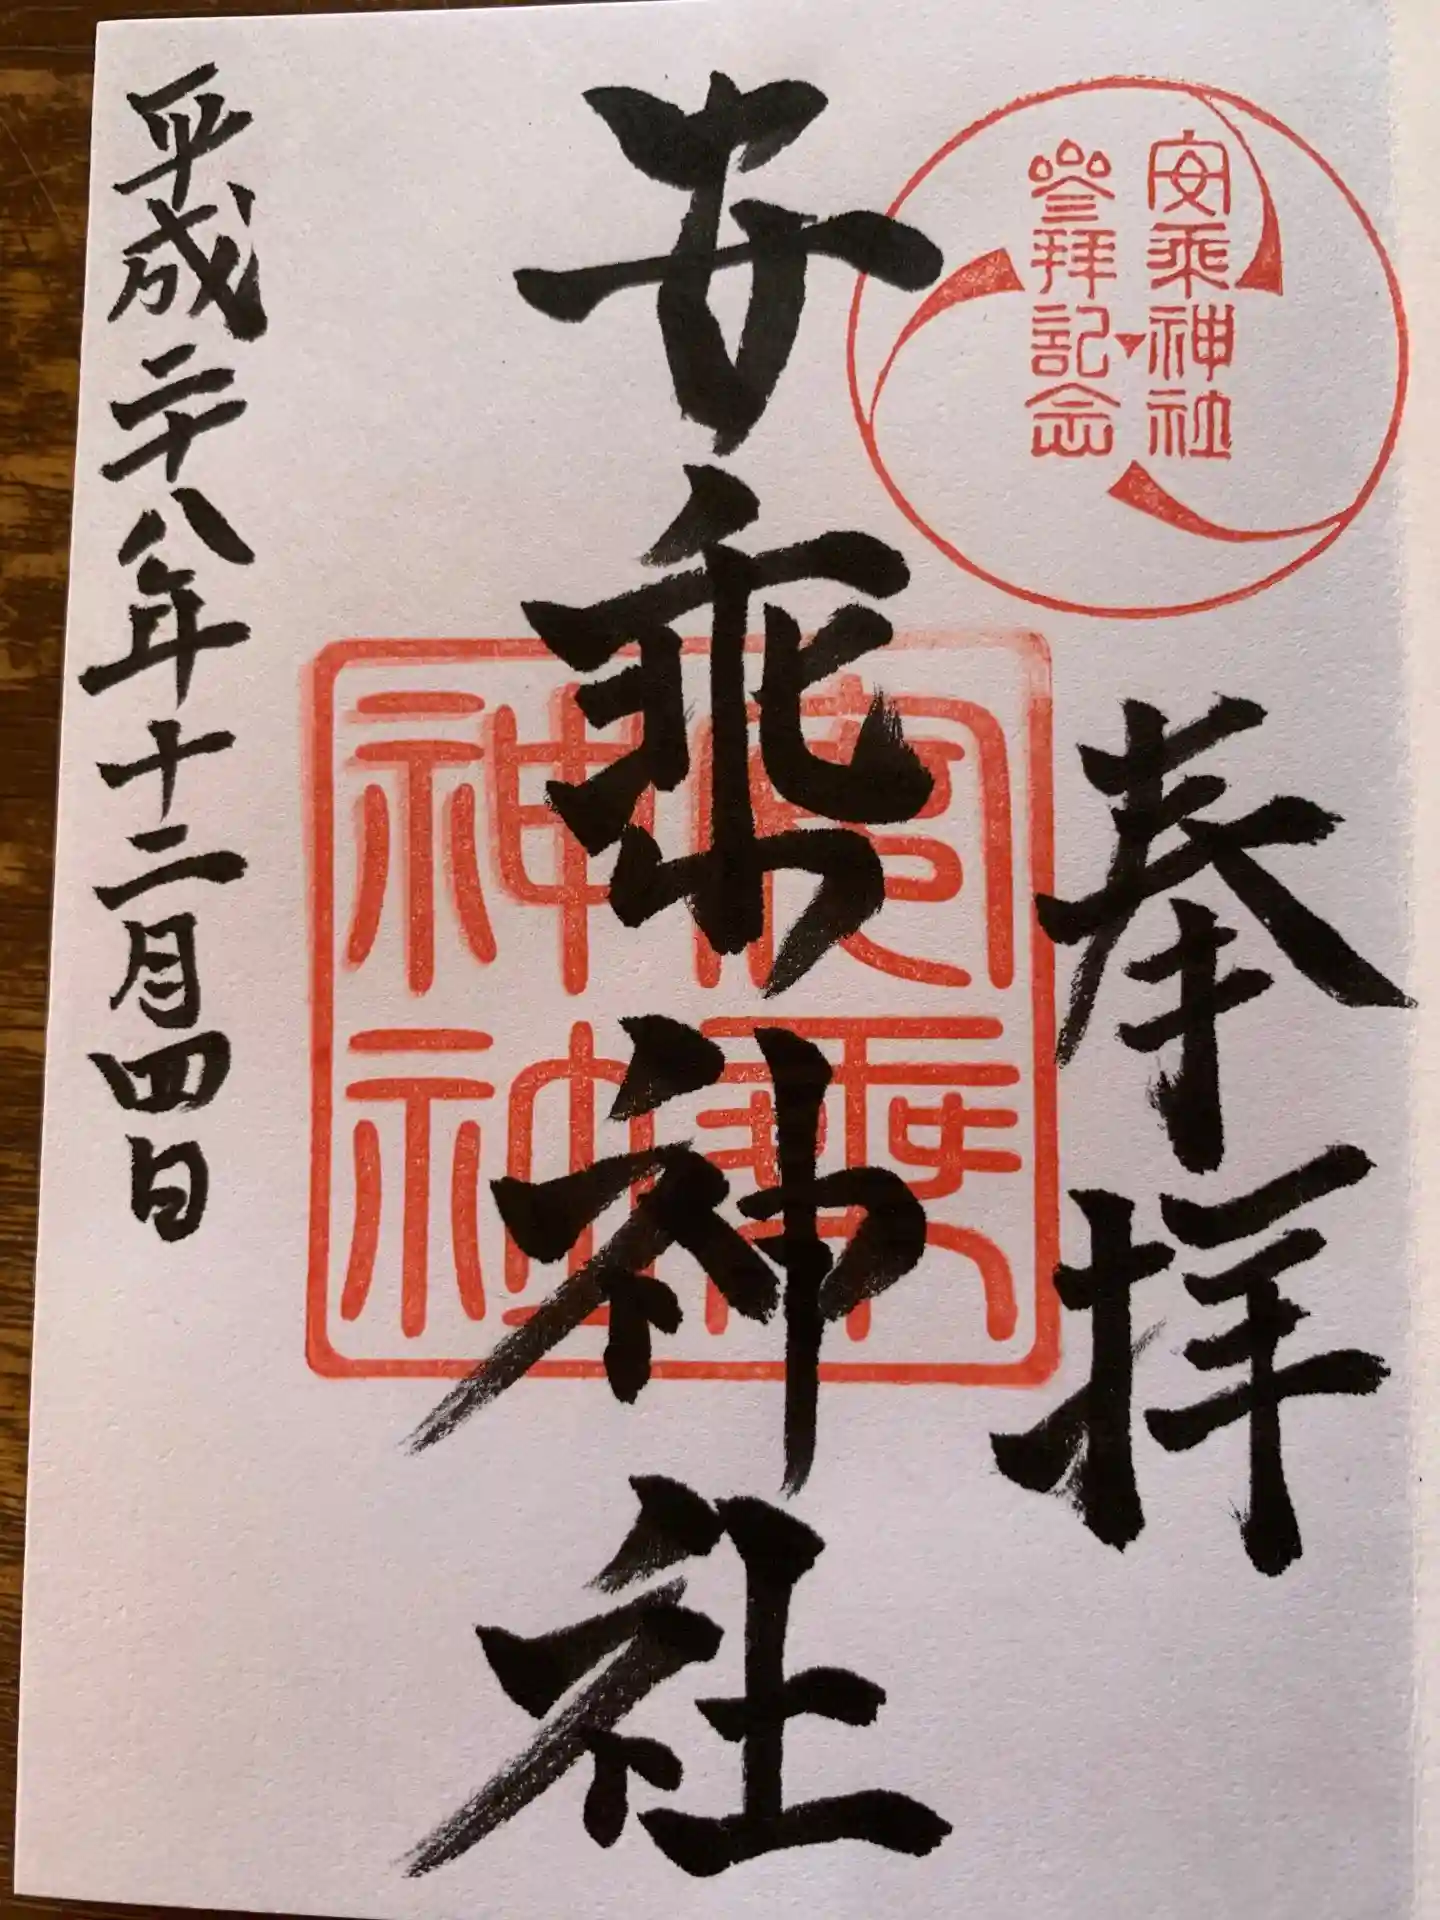 安乗神社
參拜記念
奉拝
安乗神社
安乗
神社
平成二十八年十二月四日